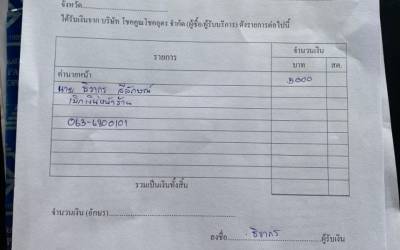 จังหวัด
ได้รับเงินจาก บริษัท โชคคูณโชคอุดร จำกัด (ผู้ซื้อ/ผู้รับบริการ) ดังรายการต่อไปนี้
รายการ จำนวนเงิน
บาท สต.
ค่านายหน้า 3000
นาย ธิวากร สีลักษณ์
เบิกเงินหน้าร้าน
063-6800101
รวมเป็นเงินทั้งสิ้น
จำนวนเงิน (อักษร)
ลงชื่อ ธิวากร ผู้รับเงิน